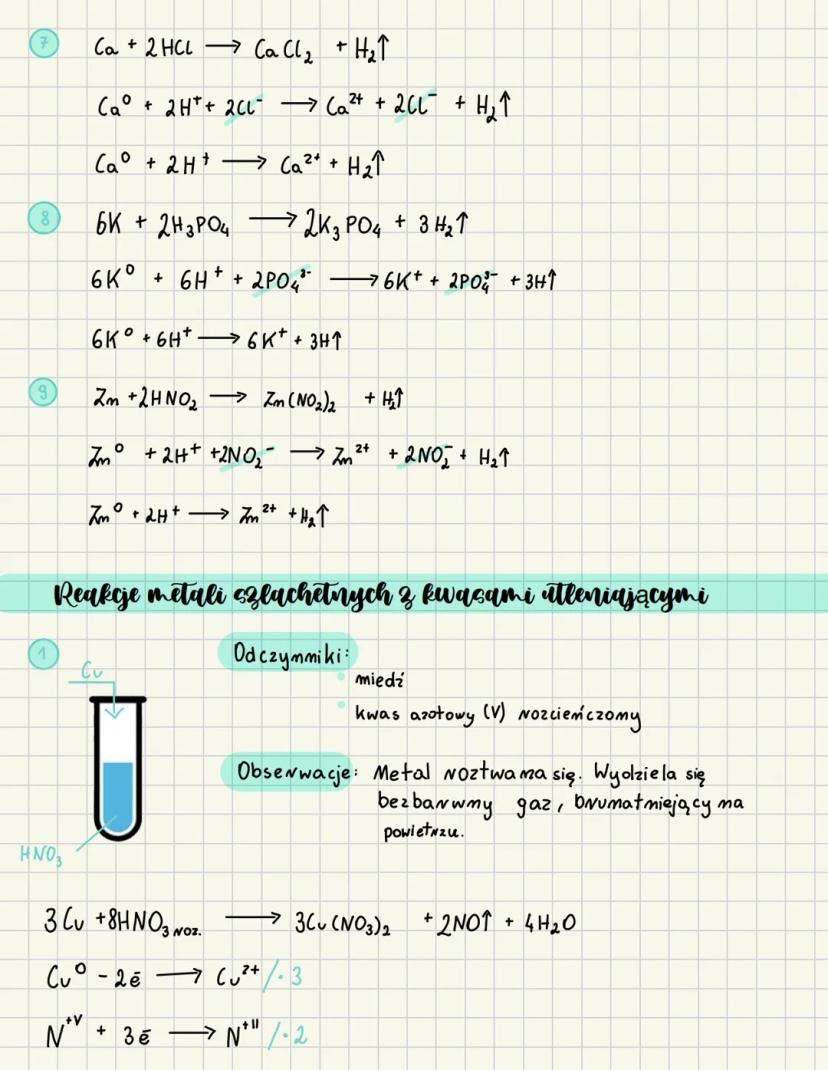 7 Ca + 2HCl ⟶ CaCl₂ + H₂↑
Ca⁰ + 2H⁺ + 2Cl⁻ ⟶ Ca²⁺ + 2Cl⁻ + H₂↑
Ca⁰ + 2H⁺ ⟶ Ca²⁺ + H₂↑
8 6K + 2H₃PO₄ ⟶ 2K₃PO₄ + 3H₂↑
6K⁰ + 6H⁺ + 2PO₄³⁻ ⟶ 6K⁺ + 2PO₄³⁻ + 3H↑
6K⁰ + 6H⁺ ⟶ 6K⁺ + 3H↑
9 Zn + 2HNO₂ ⟶ Zn(NO₂)₂ + H₂↑
Zn⁰ + 2H⁺ + 2NO₂⁻ ⟶ Zn²⁺ + 2NO₂⁻ + H₂↑
Zn⁰ + 2H⁺ ⟶ Zn²⁺ + H₂↑
Reakcje metali szlachetnych z kwasami utleniającymi
1 Odczynniki:
Cu
miedź
kwas azotowy (V) rozcieńczony
Obserwacje: Metal roztwarza się. Wydziela się
bezbarwny gaz, brunatniejący na
powietrzu.
HNO₃
3Cu + 8HNO₃ roz. ⟶ 3Cu(NO₃)₂ + 2NO↑ + 4H₂O
Cu⁰ - 2ē ⟶ Cu²⁺ /· 3
N⁺ⱽ + 3ē ⟶ N⁺ᴵᴵ /· 2